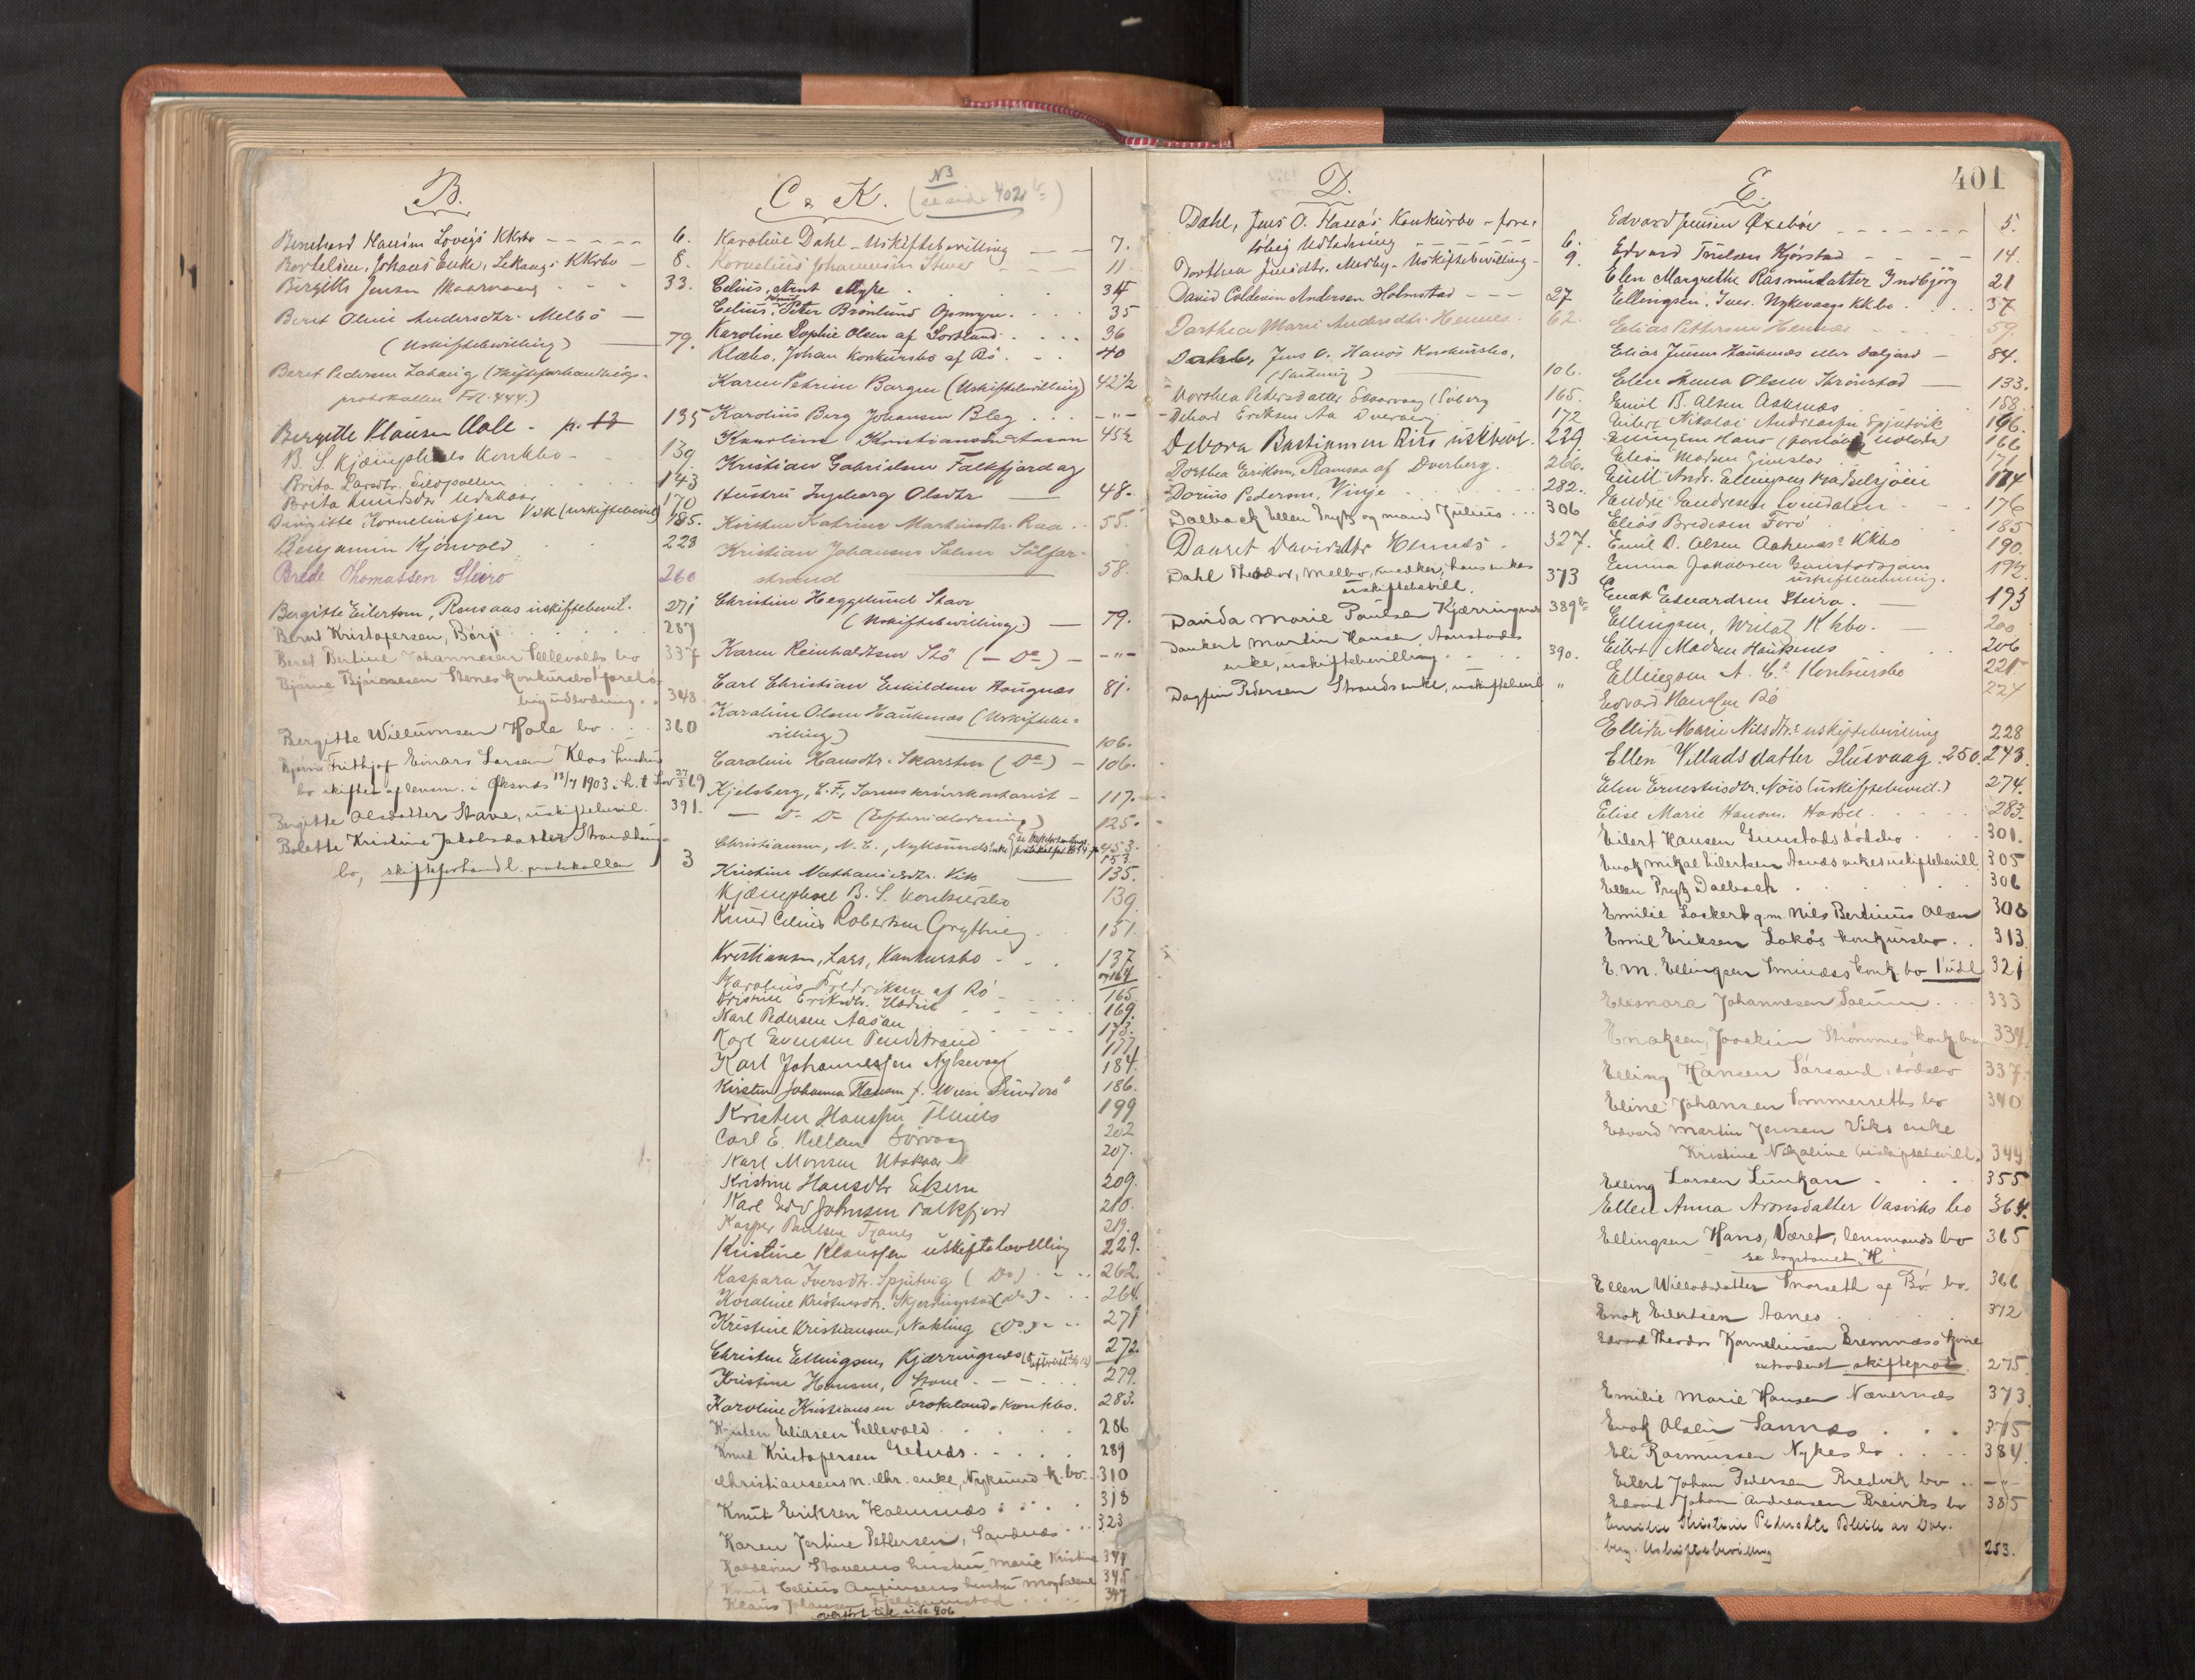 B.
Bernhard Hansen Lovigs KKrbo 6.
Bertelsen, Johans Enke, Lekangs KKrbo 8.
Birgitte Jensen 33.
Berit Oline Andersdtr. Melbö
(Uskiftebevilling) 79.
Beret Pedersen (Skifteforhandlings-
protokollen Fol. 444.)
Bergitte Klausen Aale - p. 13 135
B. S. Kjæmphaes Konkbo 139
Brita Larsdtr. 143
Brita Knudsdtr Utskaar 170
Birgitte Korneliussen Vik (uskiftebevil) 185.
Benjamin Kjörvold 228
Brede Thomassen Steiro 260
Bergitte Eilertsen, Ramsaas uskiftebevil. 271
Berit Kristofersen, Börje 287
Beret Bertine Johannesen Sellevolds bo 337
Bjarne Bjarnesen Stenes konkursbo forelö-
big udlodning 348
Bergitte Willumsen Hole bo 360
Bjarne Frithjof Einars Larsen Klos hustru
bo skiftes af lensm. i Øksnes 13/7 1903 i h. t. Lov
Bergitte Olsdatter Stave, uskiftebevil. 391.
Bolette Kristine Jakobsdatter Strandlands
bo, skifteforhandl. protokollen 3
C & K. N3 (se side 402 b)
Karoline Dahl - Uskiftebevilling 7.
Kornelius Johannesen Stave 11
Celius, Arnt Myre 34
Celius, Knud Peter Brönlund Opmyre 35
Karoline Sophie Olsen af Sortland 36
Klæbo, Johan Konkursbo af Bö 40
Karen Petrine Borgen (Uskiftebevilling) 42½
Karolius Berg Johansen Bleg - " -
Karoline Kristiansen Aasen 45½
Kristian Gabrielsen Falkfjord og
Hustru Ingeborg Olsdtr 48.
Kirsten Katrine Martinsdtr. Raa 55.
Kristian Johansen Salen Sölfar-
strand 58.
Christine Heggelund Stave
(Uskiftebevilling) 79.
Karen Reinholdtsen Stö (- Do -) - " -
Carl Christian Eskildsen Haugnæs 81.
Karoline Olsen Haukenæs (Uskiftebe-
villing) 106.
Caroline Hansdtr. Skarsten (Do) 106.
Kjelsberg, L. F., Sorenskriverkontorist 117.
- Do Do (Efterudlodning) 125.
Christiansen, N. C., Nyksunds Enke 153.
Kristine Nathanielsdtr. Vik 135.
Kjæmphaes B. S. Konkursbo 139
Knud Celius Robertsen Grytting 151.
Kristiansen, Lars, Konkursbo 137
og 164
Karolius Fredriksen af Bö 165
Kristine Eriksdtr. Hadsel 169.
Karl Pedersen Aasan 173.
Karl Evensen Tendstrand 177
Karl Johannessen Nykvaag 184.
Kirsten Johanna Hansen f. Wiese Sunderø 186.
Kristen Hanssen Tunes 199
Carl E. Nillsen Sörvaag 202
Karl Monsen Utskaar 207.
Kristine Hansdtr Elsem 209.
Karl Edv Johnsen Falkfjord 210.
Kasper Paulsen Tranes 219.
Kristine Klaussen uskiftebevilling 229.
Kaspara Iversdtr. Spjutvig (Do) 262.
Karoline Kristensdtr. Skjerdingstad (Do) 264.
Kristine Kristiansen, Nakling (Do) 271
Christen Ellingsen, Kjærringnes 272.
Kristine Hansen, Stave 279.
Karoline Kristiansen Froskelands konkbo. 283.
Kjersten Eliasen Sellevold 286
Knud Kristofersen Gednæs 289
Christiansens N. Chr. enke, Nyksund k. bo 310
Knut Eriksen Holmnæs 318
Karen Jertine Pettersen, Sandnes 323
Kaldevin Stavens hustru Marie Kristine 341
Knut Celius Anfinsens hustru Magdalene 345
Klaus Johansen 347
overført til side 406
D.
Dahl, Jens O. Hanös Konkursbo - fore-
löbig Udlodning 6.
Dorthea Jensdtr. Melby - Uskiftebevilling 9.
David Coldevin Andersen Holmstad 27
Dorthea Marie Andersdtr. Hennes 62.
Dahl, Jens O. Hanös Konkursbo,
(Slutning) 106.
Dorthea Pedersdatter Skaarvaag Soberg 165.
Dehard Eriksen Aa Dverberg 172
Debora Bastiansen Risø uskbevil. 229
Dorthea Eriksen, Ramsaa af Dverberg. 266.
Dorius Pedersen, Vinje 282.
Dalback Ellen Prytz og mand Julius 306
Dauret Davidsdtr Hennes 327.
Dahl Theodor, Melbo, snedker, hans enkes
uskiftebevill. 373
Davida Marie Paulsen Kjærringnes 389 b
Dankert Martin Hansen Aanstades
enke, uskiftebevilling 390.
Dagfin Pedersen Strands enke, uskiftebevil "
401
E.
Edvard Jensen Øxebö 5.
Edvard Trulsen Kjörstad 14.
Elen Margrethe Rasmusdatter Indbjörg 21
Ellingsen, Iver. Nykvaags KKbo. 37
Elias Pettersen Hennæs 59.
Elias Jensen Haukenæs eller Saljord 84.
Elen Anna Olsen Skrönstad 133.
Emil B. Olsen Aaknæs 188.
Eilert Nikolai Andreassen Spjutvik 166.
Ellingsen Hans (foreløbig udlodn) 166
Elias Madsen Gimstad 171
Emil Andr. Ellingsen Hadselsjöen 174
Endre Endresen Lomdalen 176
Elias Bredesen Forö 185
Emil D. Olsen Aaknæs KKbo 190.
Emma Jakobsen Gaustadsjøen
uskiftebevilling. 192
Enok Edvardsen Steiro. 193
Ellingsen, KKbo. 200
Eilert Madsen Haukenes 206
Ellingsen A. C.s Konkursbo 221
Edvard Hansen Bö 224
Ellida Marie Nilsdtrs uskiftebevilling 228
Ellen Villadsdatter Husvaag. 250. 243.
Elen Ernestusdtr. Nöis (uskiftebevil.) 274.
Elise Marie Hansen. Hadsel. 283.
Eilert Hansen Gimstads dødsbo 301.
Enok Mikal Eilertsen Aanæs enkes uskiftebevill. 305
Ellen Prytz Dalback 306
Emilie Lockert g. m. Nils Bertinius Olsen 308
Emil Eriksen Lokös konkursbo 313
E. M. Ellingsen Sminæs konk. bo 1 udl 321
Eleonora Johannesen Saeum 333
Enoksen, Joakim Strømmes konk. bo 334.
Elling Hansen Sørsand, dödsbo 337.
Eline Johansen Sommerseths bo 340
Edvard Martin Jensen Viks enke
Kristine Nikoline (uskiftebevill.) 344
Elling Larsen Lunkan 355
Ellen Anna Aronsdatter Vasviks bo 364.
Ellingsen Hans, Været, lensmands bo 365
se bogstavet H
Ellen Willadsdatter Snarseth af Bö. bo. 366
Enok Eilertsen Aanes 372
Edvard Theodor Korneliussen Bremnæs's kone
extraderet skifteprot. 275
Emilie Marie Hansen Nævernæs 373
Enok Olsen Sannæs 375
Eli Rasmussen Nykes bo 384.
Eilert Johan Pedersen Bredvik bo - " -
Edvard Johan Andreasen Breiviks bo 385
Emilie Kristine Pedersdtr Bleik av Dver-
berg. Uskiftebevilling 253.